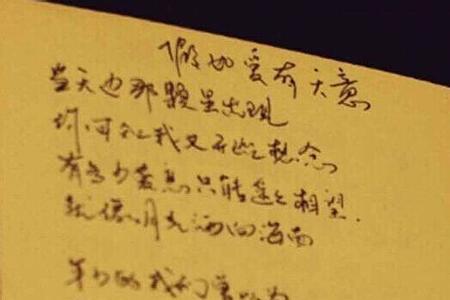 假如爱有天意
当天边那颗星出现
你可知我又开始想念
有多少爱恋只能遥遥相望.
就像月光洒向海面
年少的我们曾以为